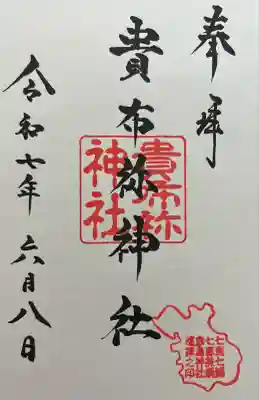 奉拝
貴布祢神社
貴布祢
神社
令和七年 六月八日